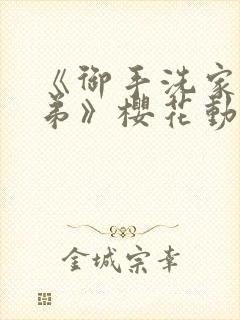 《御手洗家
弟》樱花動
金城宗幸